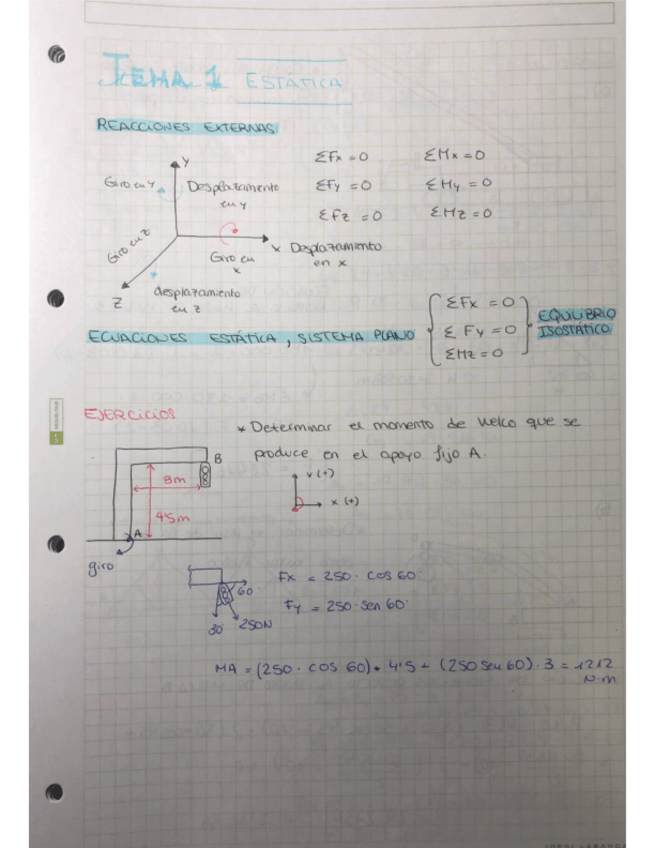 TEMA 1 ESTÁTICA
REACCIONES EXTERNAS
Y
Giro en Y
Desplazamento
en y
Giro en Z
Giro en
x
x Desplazamiento
en x
Z
desplazamiento
en z
ΣFx = 0
ΣMx = 0
ΣFy = 0
ΣMy = 0
ΣFz = 0
ΣMz = 0
ECUACIONES ESTÁTICA, SISTEMA PLANO
ΣFx = 0
ΣFy = 0
ΣMz = 0
EQUILIBRIO
ISOSTÁTICO
EJERCICIOS
* Determinar el momento de vuelco que se
produce en el apoyo fijo A.
B
3m
4'5m
A
giro
Y (+)
x (+)
60°
30°
250N
Fx = 250 · cos 60°
Fy = 250 · sen 60°
MA = (250 · cos 60) · 4'5 + (250 sen 60) · 3 = 1212
N·m